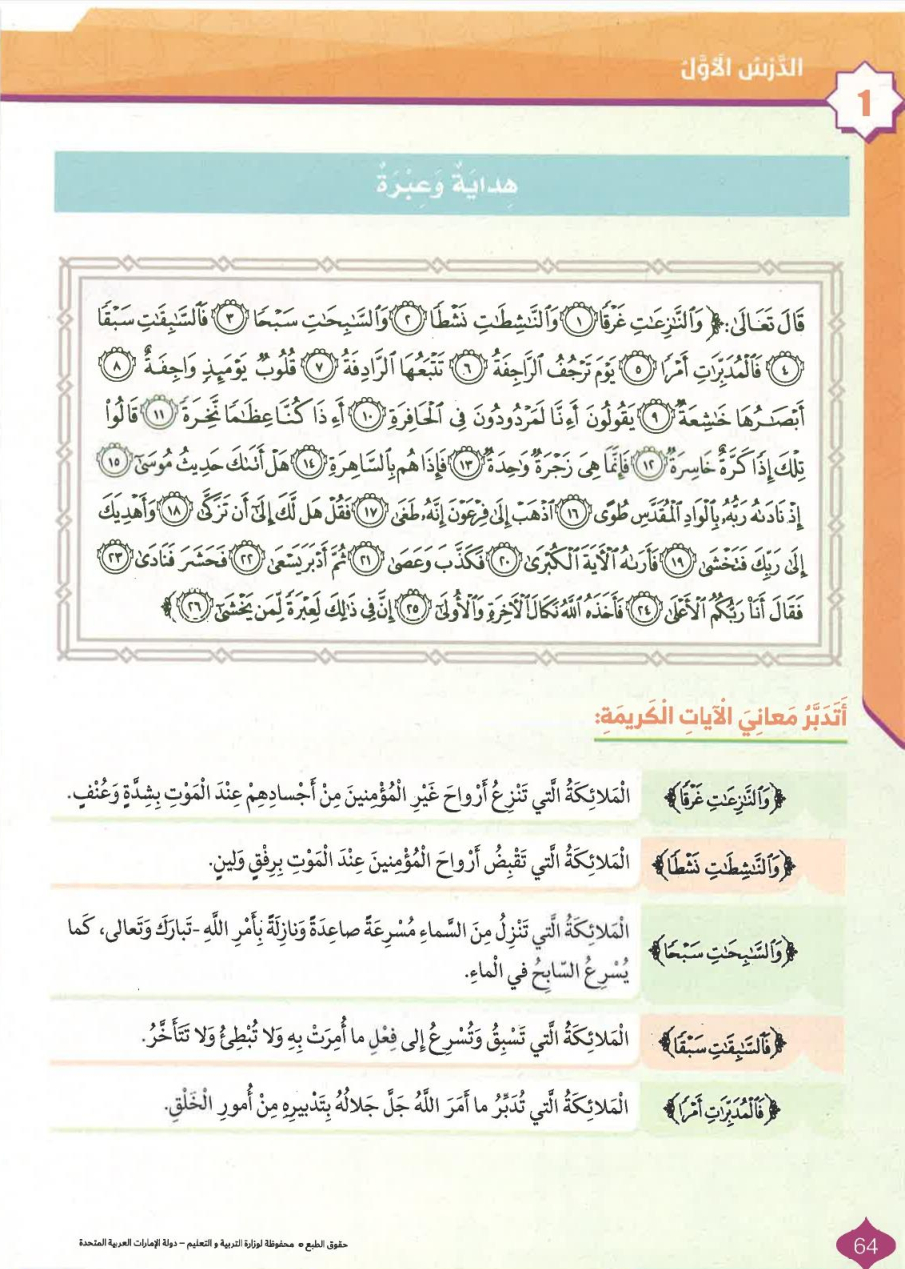 الدَّرْسُ الْأَوَّلُ
1
هِدايَةٌ وَعِبْرَةٌ
قَالَ تَعَالَىٰ: ﴿ وَٱلنَّٰزِعَٰتِ غَرْقًا ١ وَٱلنَّٰشِطَٰتِ نَشْطًا ٢ وَٱلسَّٰبِحَٰتِ سَبْحًا ٣ فَٱلسَّٰبِقَٰتِ سَبْقًا
٤ فَٱلْمُدَبِّرَٰتِ أَمْرًا ٥ يَوْمَ تَرْجُفُ ٱلرَّاجِفَةُ ٦ تَتْبَعُهَا ٱلرَّادِفَةُ ٧ قُلُوبٌ يَوْمَئِذٍ وَاجِفَةٌ ٨
أَبْصَٰرُهَا خَٰشِعَةٌ ٩ يَقُولُونَ أَءِنَّا لَمَرْدُودُونَ فِي ٱلْحَافِرَةِ ١٠ أَءِذَا كُنَّا عِظَٰمًا نَّخِرَةً ١١ قَالُوا۟
تِلْكَ إِذًا كَرَّةٌ خَاسِرَةٌ ١٢ فَإِنَّمَا هِيَ زَجْرَةٌ وَٰحِدَةٌ ١٣ فَإِذَا هُم بِٱلسَّاهِرَةِ ١٤ هَلْ أَتَىٰكَ حَدِيثُ مُوسَىٰٓ ١٥
إِذْ نَادَىٰهُ رَبُّهُۥ بِٱلْوَادِ ٱلْمُقَدَّسِ طُوًى ١٦ ٱذْهَبْ إِلَىٰ فِرْعَوْنَ إِنَّهُۥ طَغَىٰ ١٧ فَقُلْ هَل لَّكَ إِلَىٰٓ أَن تَزَكَّىٰ ١٨ وَأَهْدِيَكَ
إِلَىٰ رَبِّكَ فَتَخْشَىٰ ١٩ فَأَرَىٰهُ ٱلْأٓيَةَ ٱلْكُبْرَىٰ ٢٠ فَكَذَّبَ وَعَصَىٰ ٢١ ثُمَّ أَدْبَرَ يَسْعَىٰ ٢٢ فَحَشَرَ فَنَادَىٰ ٢٣
فَقَالَ أَنَا۠ رَبُّكُمُ ٱلْأَعْلَىٰ ٢٤ فَأَخَذَهُ ٱللَّهُ نَكَالَ ٱلْأٓخِرَةِ وَٱلْأُولَىٰٓ ٢٥ إِنَّ فِي ذَٰلِكَ لَعِبْرَةً لِّمَن يَخْشَىٰٓ ٢٦ ﴾
أَتَدَبَّرُ مَعانِيَ الْآياتِ الْكَريمَةِ:
﴿وَٱلنَّٰزِعَٰتِ غَرْقًا﴾ الْمَلائِكَةُ الَّتي تَنْزِعُ أَرْواحَ غَيْرِ الْمُؤْمِنينَ مِنْ أَجْسادِهِمْ عِنْدَ الْمَوْتِ بِشِدَّةٍ وَعُنْفٍ.
﴿وَٱلنَّٰشِطَٰتِ نَشْطًا﴾ الْمَلائِكَةُ الَّتي تَقْبِضُ أَرْواحَ الْمُؤْمِنينَ عِنْدَ الْمَوْتِ بِرِفْقٍ وَلينٍ.
﴿وَٱلسَّٰبِحَٰتِ سَبْحًا﴾ الْمَلائِكَةُ الَّتي تَنْزِلُ مِنَ السَّماءِ مُسْرِعَةً صاعِدَةً وَنازِلَةً بِأَمْرِ اللَّهِ -تَبارَكَ وَتَعالى، كَما
يُسْرِعُ السّابِحُ في الْماءِ.
﴿فَٱلسَّٰبِقَٰتِ سَبْقًا﴾ الْمَلائِكَةُ الَّتي تَسْبِقُ وَتُسْرِعُ إِلى فِعْلِ ما أُمِرَتْ بِهِ وَلا تُبْطِئُ وَلا تَتَأَخَّرُ.
﴿فَٱلْمُدَبِّرَٰتِ أَمْرًا﴾ الْمَلائِكَةُ الَّتي تُدَبِّرُ ما أَمَرَ اللَّهُ جَلَّ جَلالُهُ بِتَدْبيرِهِ مِنْ أُمورِ الْخَلْقِ.
حقوق الطبع © محفوظة لوزارة التربية و التعليم – دولة الإمارات العربية المتحدة
64